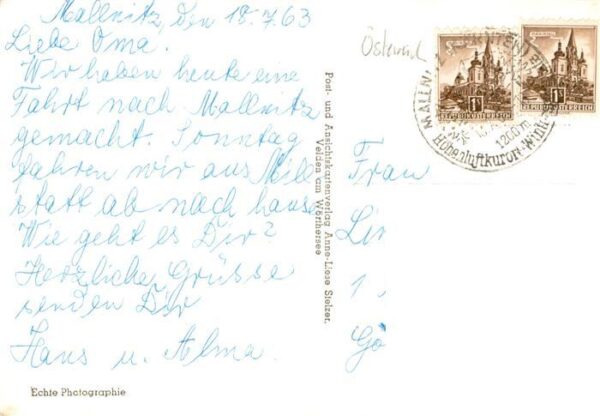 Mallnitz, den 18.7.63
Liebe Oma.
Wir haben heute eine
Fahrt nach Mallnitz
gemacht. Sonntag
fahren wir aus Mill
statt ab nach hause
Wie geht es Dir?
Herzliche Grüsse
senden Dir
Hans u. Alma.
Echte Photographie
Post- und Ansichtskartenverlag Anne-Liese Stelzer,
Velden am Wörthersee
REPUBLIK ÖSTERREICH
REPUBLIK ÖSTERREICH
1200 m
Höhenluftkurort
Frau
Lir
1
Gö